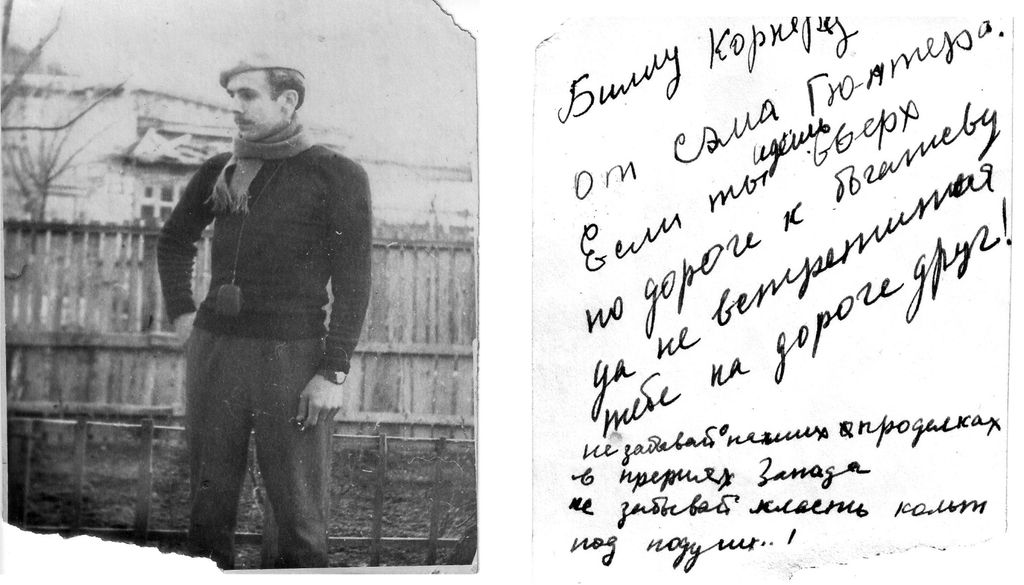 Биллу Корнеру
от Сэма Гюнтера.
Если ты идешь вверх
по дороге к богатеву
да не встретится
тебе на дороге друг!
не забывай о наших проделках
в прериях Запада
не забывай класть кольт
под подушк..!